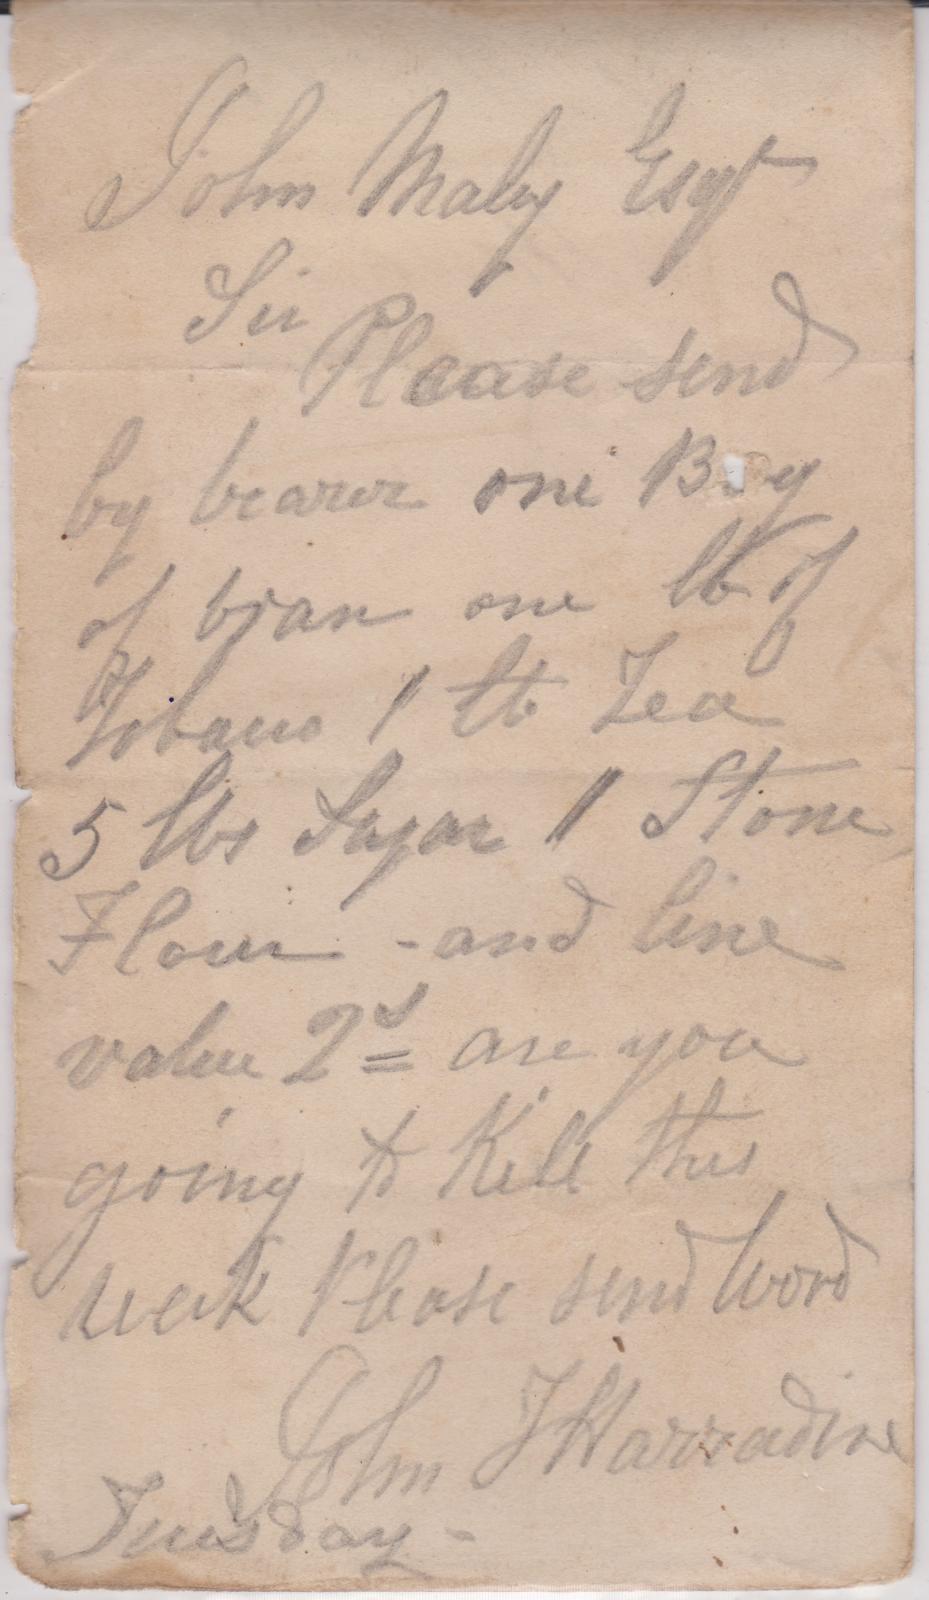 John Maby Esqr
Sir
Please send
by bearer one Bag
of bran one lb of
Tobacco 1 lb Tea
5 lbs Sugar 1 Stone
Flour - and line
value 2s are you
going to Kill this
week Please send word
John T Harradine
Tuesday -